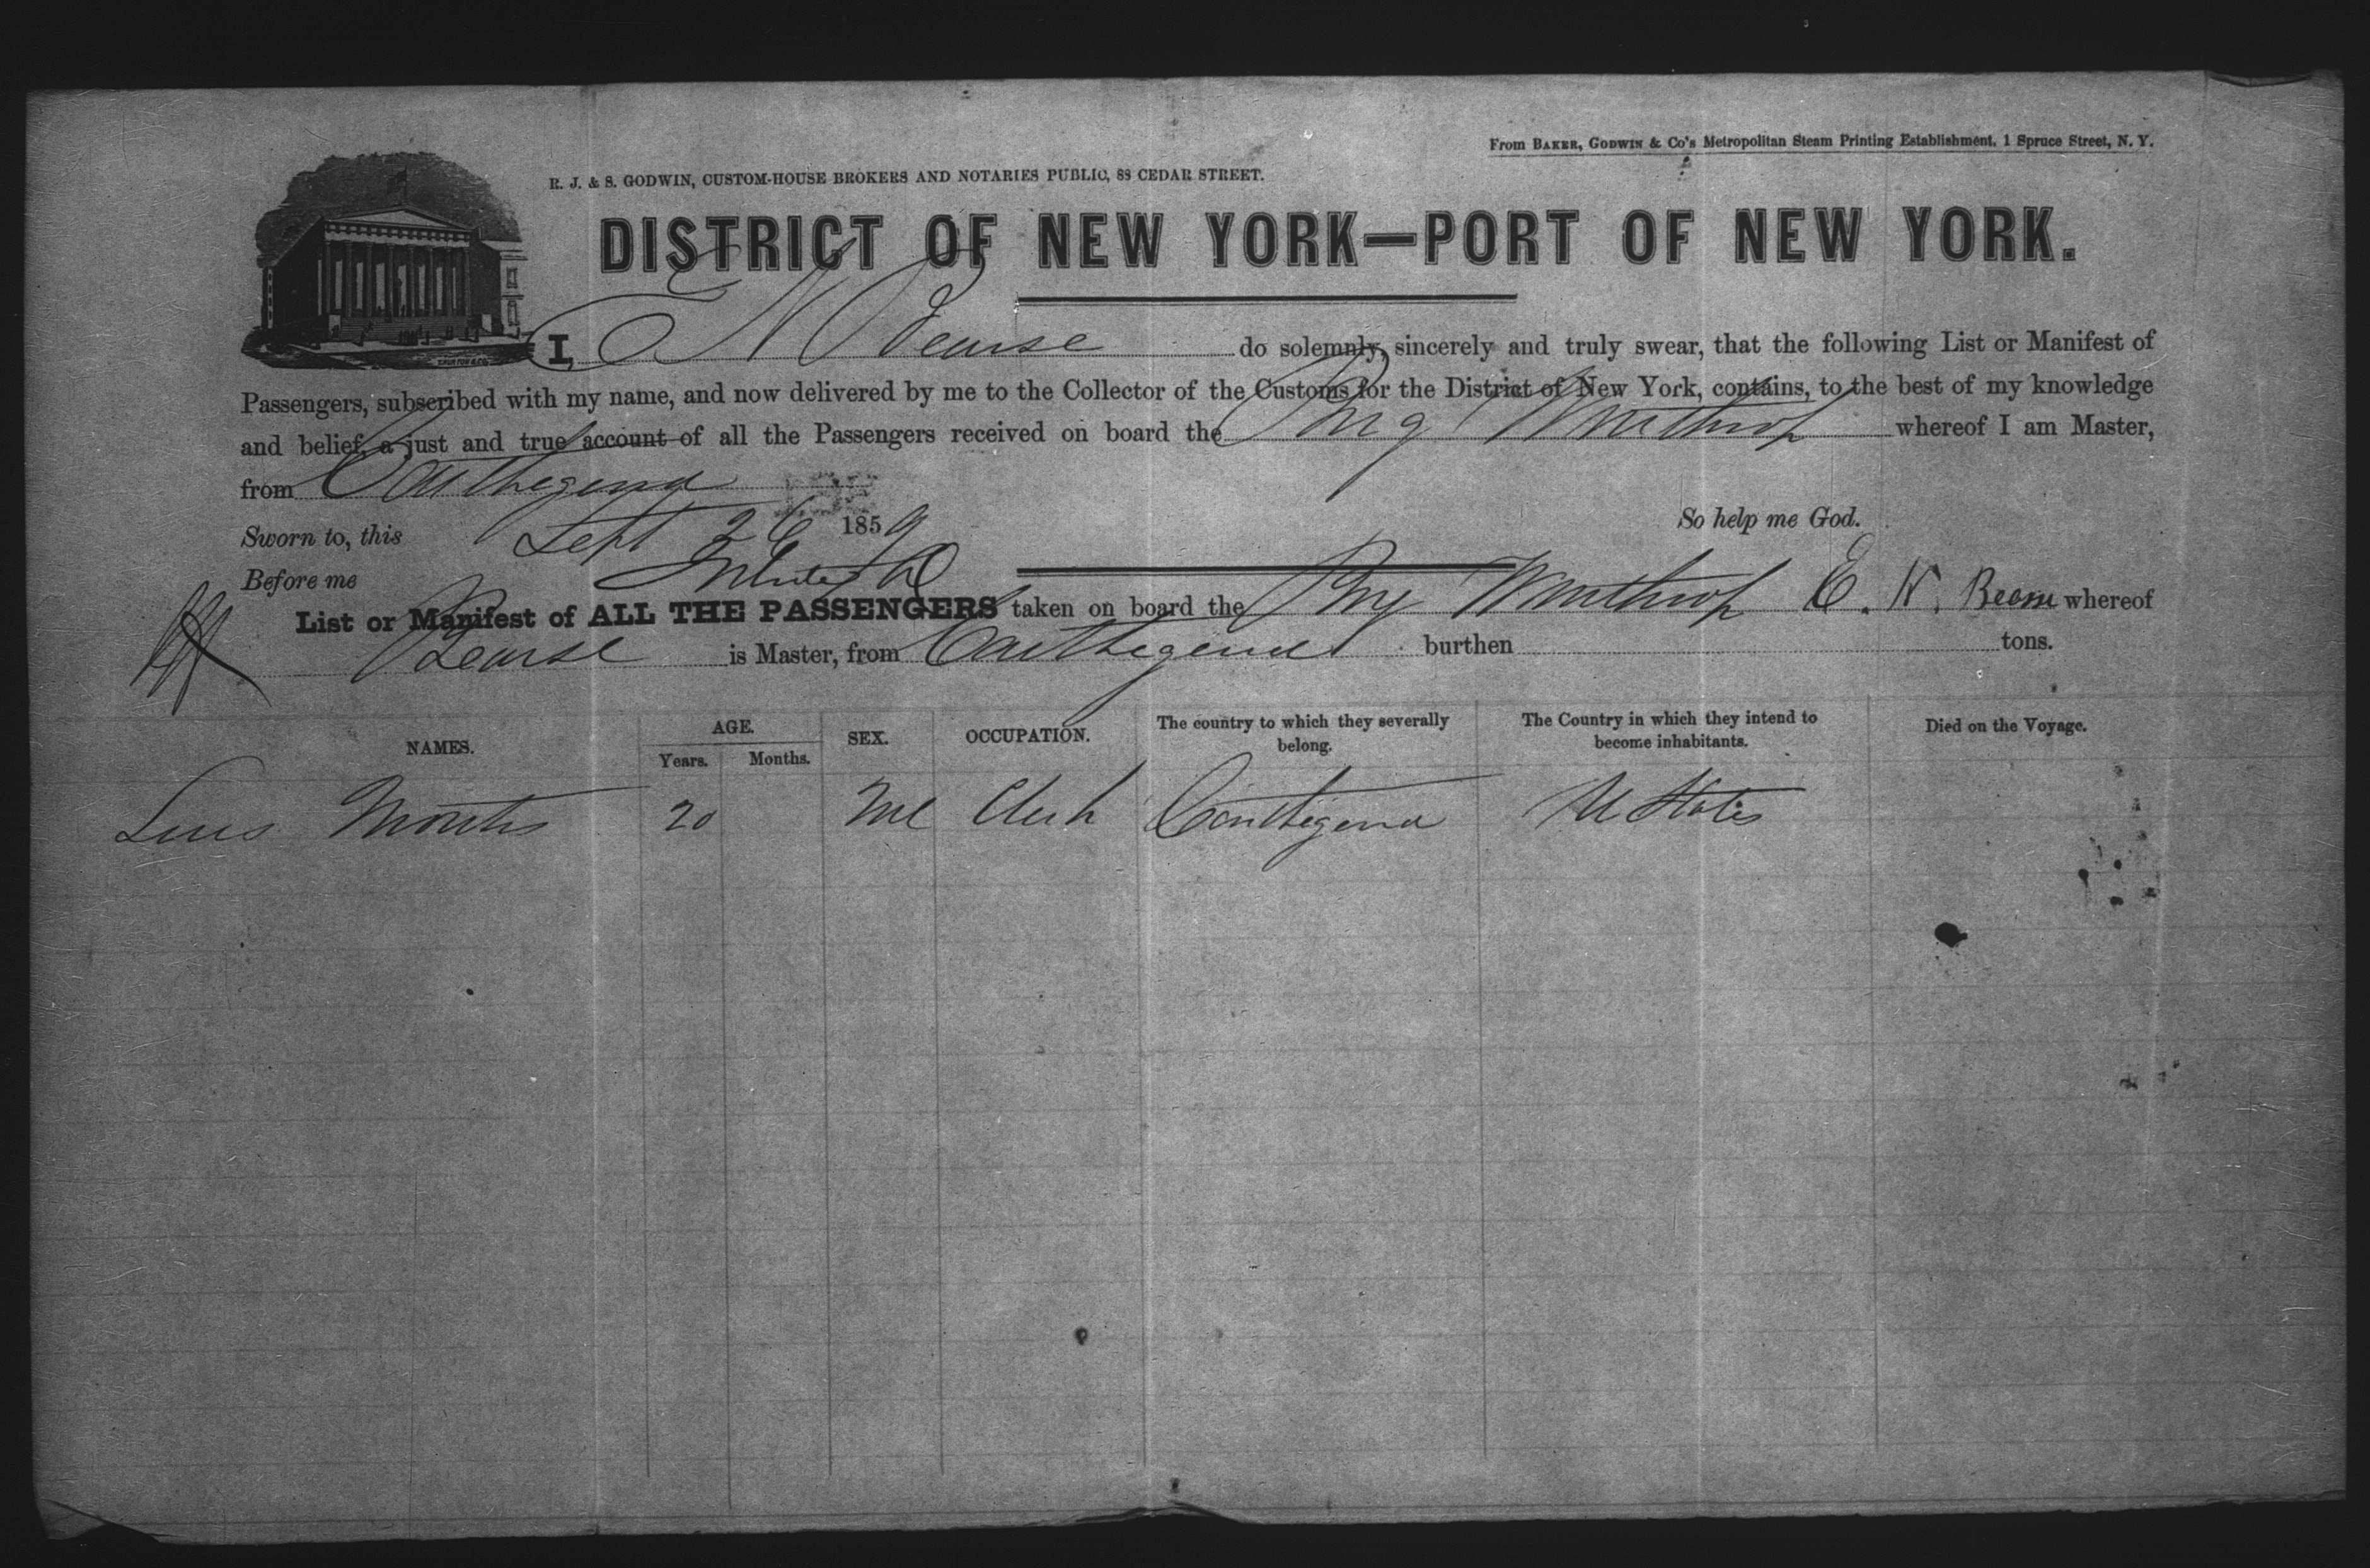 From BAKER, GODWIN & Co's Metropolitan Steam Printing Establishment, 1 Spruce Street, N. Y.
R. J. & S. GODWIN, CUSTOM-HOUSE BROKERS AND NOTARIES PUBLIC, 88 CEDAR STREET.
DISTRICT OF NEW YORK—PORT OF NEW YORK.
I, E N Pearse do solemnly, sincerely and truly swear, that the following List or Manifest of
Passengers, subscribed with my name, and now delivered by me to the Collector of the Customs for the District of New York, contains, to the best of my knowledge
and belief, a just and true account of all the Passengers received on board the Brig Winthrop whereof I am Master,
from Carthegena
Sworn to, this Sept 26 1859 So help me God.
Before me
List or Manifest of ALL THE PASSENGERS taken on board the Brig Winthrop E. N. whereof
Pearse is Master, from Carthegena burthen tons.
NAMES. AGE. SEX. OCCUPATION. The country to which they severally belong. The Country in which they intend to become inhabitants. Died on the Voyage.
Years. Months.
Luis 20 Ml Clerk Carthegena U States